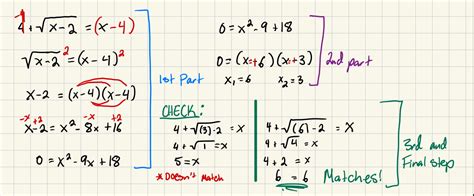 4+√x-2 = (x-4)
√x-2² = (x-4)²
x-2 = (x-4)(x-4)
-x+2 -x +2
x-2 = x²-8x+16
0 = x²-9x+18
1st Part
0 = x²-9+18
0 = (x+6)(x+3)
x₁=6 x₂=3
2nd part
CHECK:
4+√(3)-2 = x
4+√1 = x
5 = x
* Doesn't Match
4+√(6)-2 = x
4+√4 = x
4+2 = x
6 = 6 Matches!
3rd and
Final step